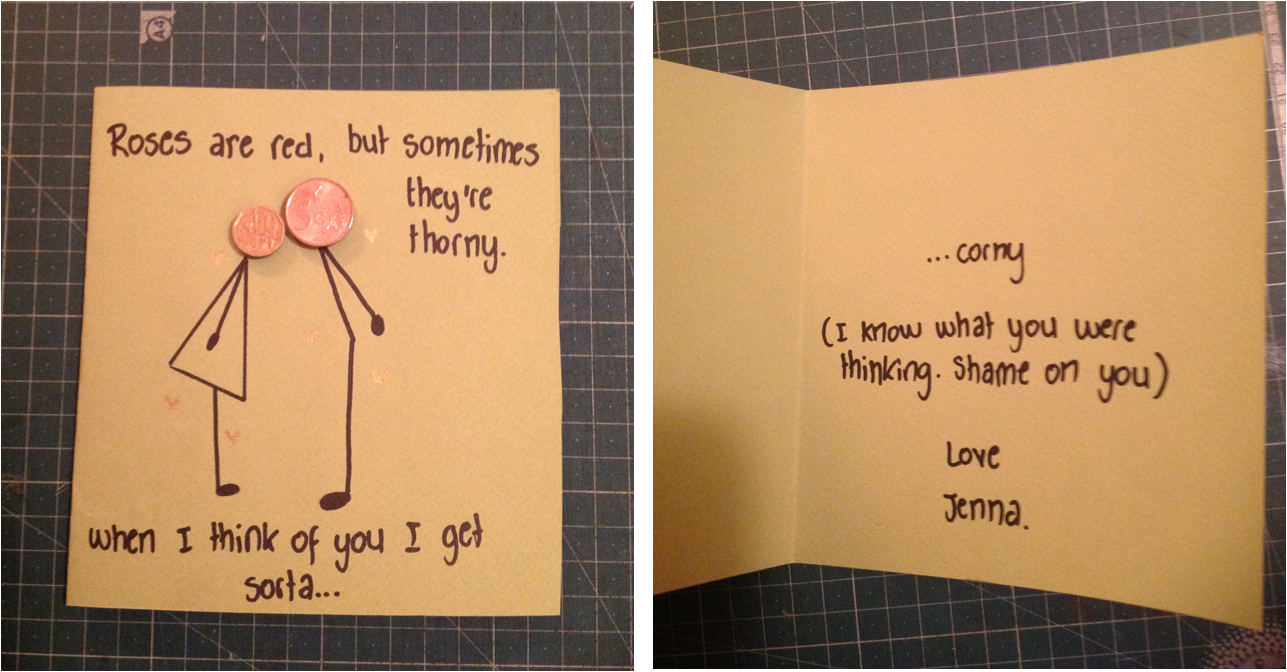 A4
Roses are red, but sometimes
they're
thorny.
when I think of you I get
sorta...
...corny
(I know what you were
thinking. Shame on you)
Love
Jenna.